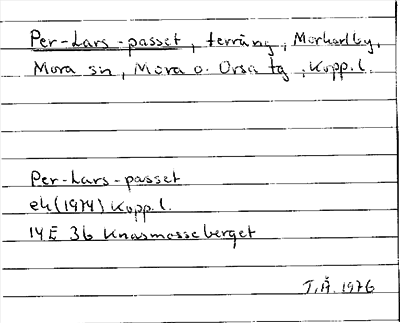 Per-Lars-passet, terräng, Morkarlby,
Mora sn, Mora o. Orsa tg, Kopp. l.
Per-Lars-passet
ek (1974) Kopp. l.
14E 3b Knasmosseberget
T.Å. 1976